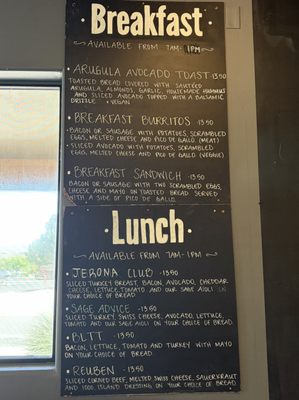 ·Breakfast·
~ AVAILABLE FROM 7AM-1PM ~
· ARUGULA AVOCADO TOAST · 13.50
TOASTED BREAD COVERED WITH SAUTÉED
ARUGULA, ALMONDS, GARLIC, HOUSEMADE HUMMUS
AND SLICED AVOCADO TOPPED WITH A BALSAMIC
DRIZZLE · VEGAN
· BREAKFAST BURRITOS · 13.50
· BACON OR SAUSAGE WITH POTATOES, SCRAMBLED
EGGS, MELTED CHEESE AND PICO DE GALLO (MEAT)
· SLICED AVOCADO WITH POTATOES, SCRAMBLED
EGGS, MELTED CHEESE AND PICO DE GALLO (VEGGIE)
· BREAKFAST SANDWICH · 13.50
BACON OR SAUSAGE WITH TWO SCRAMBLED EGGS,
CHEESE AND MAYO ON TOASTED BREAD SERVED
WITH A SIDE OF PICO DE GALLO
·Lunch·
~ AVAILABLE FROM 7AM-1PM ~
· JERONA CLUB · 13.50
SLICED TURKEY BREAST, BACON, AVOCADO, CHEDDAR
CHEESE, LETTUCE, TOMATO AND OUR SAGE AIOLI ON
YOUR CHOICE OF BREAD
· SAGE ADVICE · 13.50
SLICED TURKEY, SWISS CHEESE, AVOCADO, LETTUCE,
TOMATO AND OUR SAGE AIOLI ON YOUR CHOICE OF BREAD.
· BLTT · 13.50
BACON, LETTUCE, TOMATO AND TURKEY WITH MAYO
ON YOUR CHOICE OF BREAD
· REUBEN · 13.50
SLICED CORNED BEEF, MELTED SWISS CHEESE, SAUERKRAUT
AND 1000 ISLAND DRESSING ON YOUR CHOICE OF BREAD